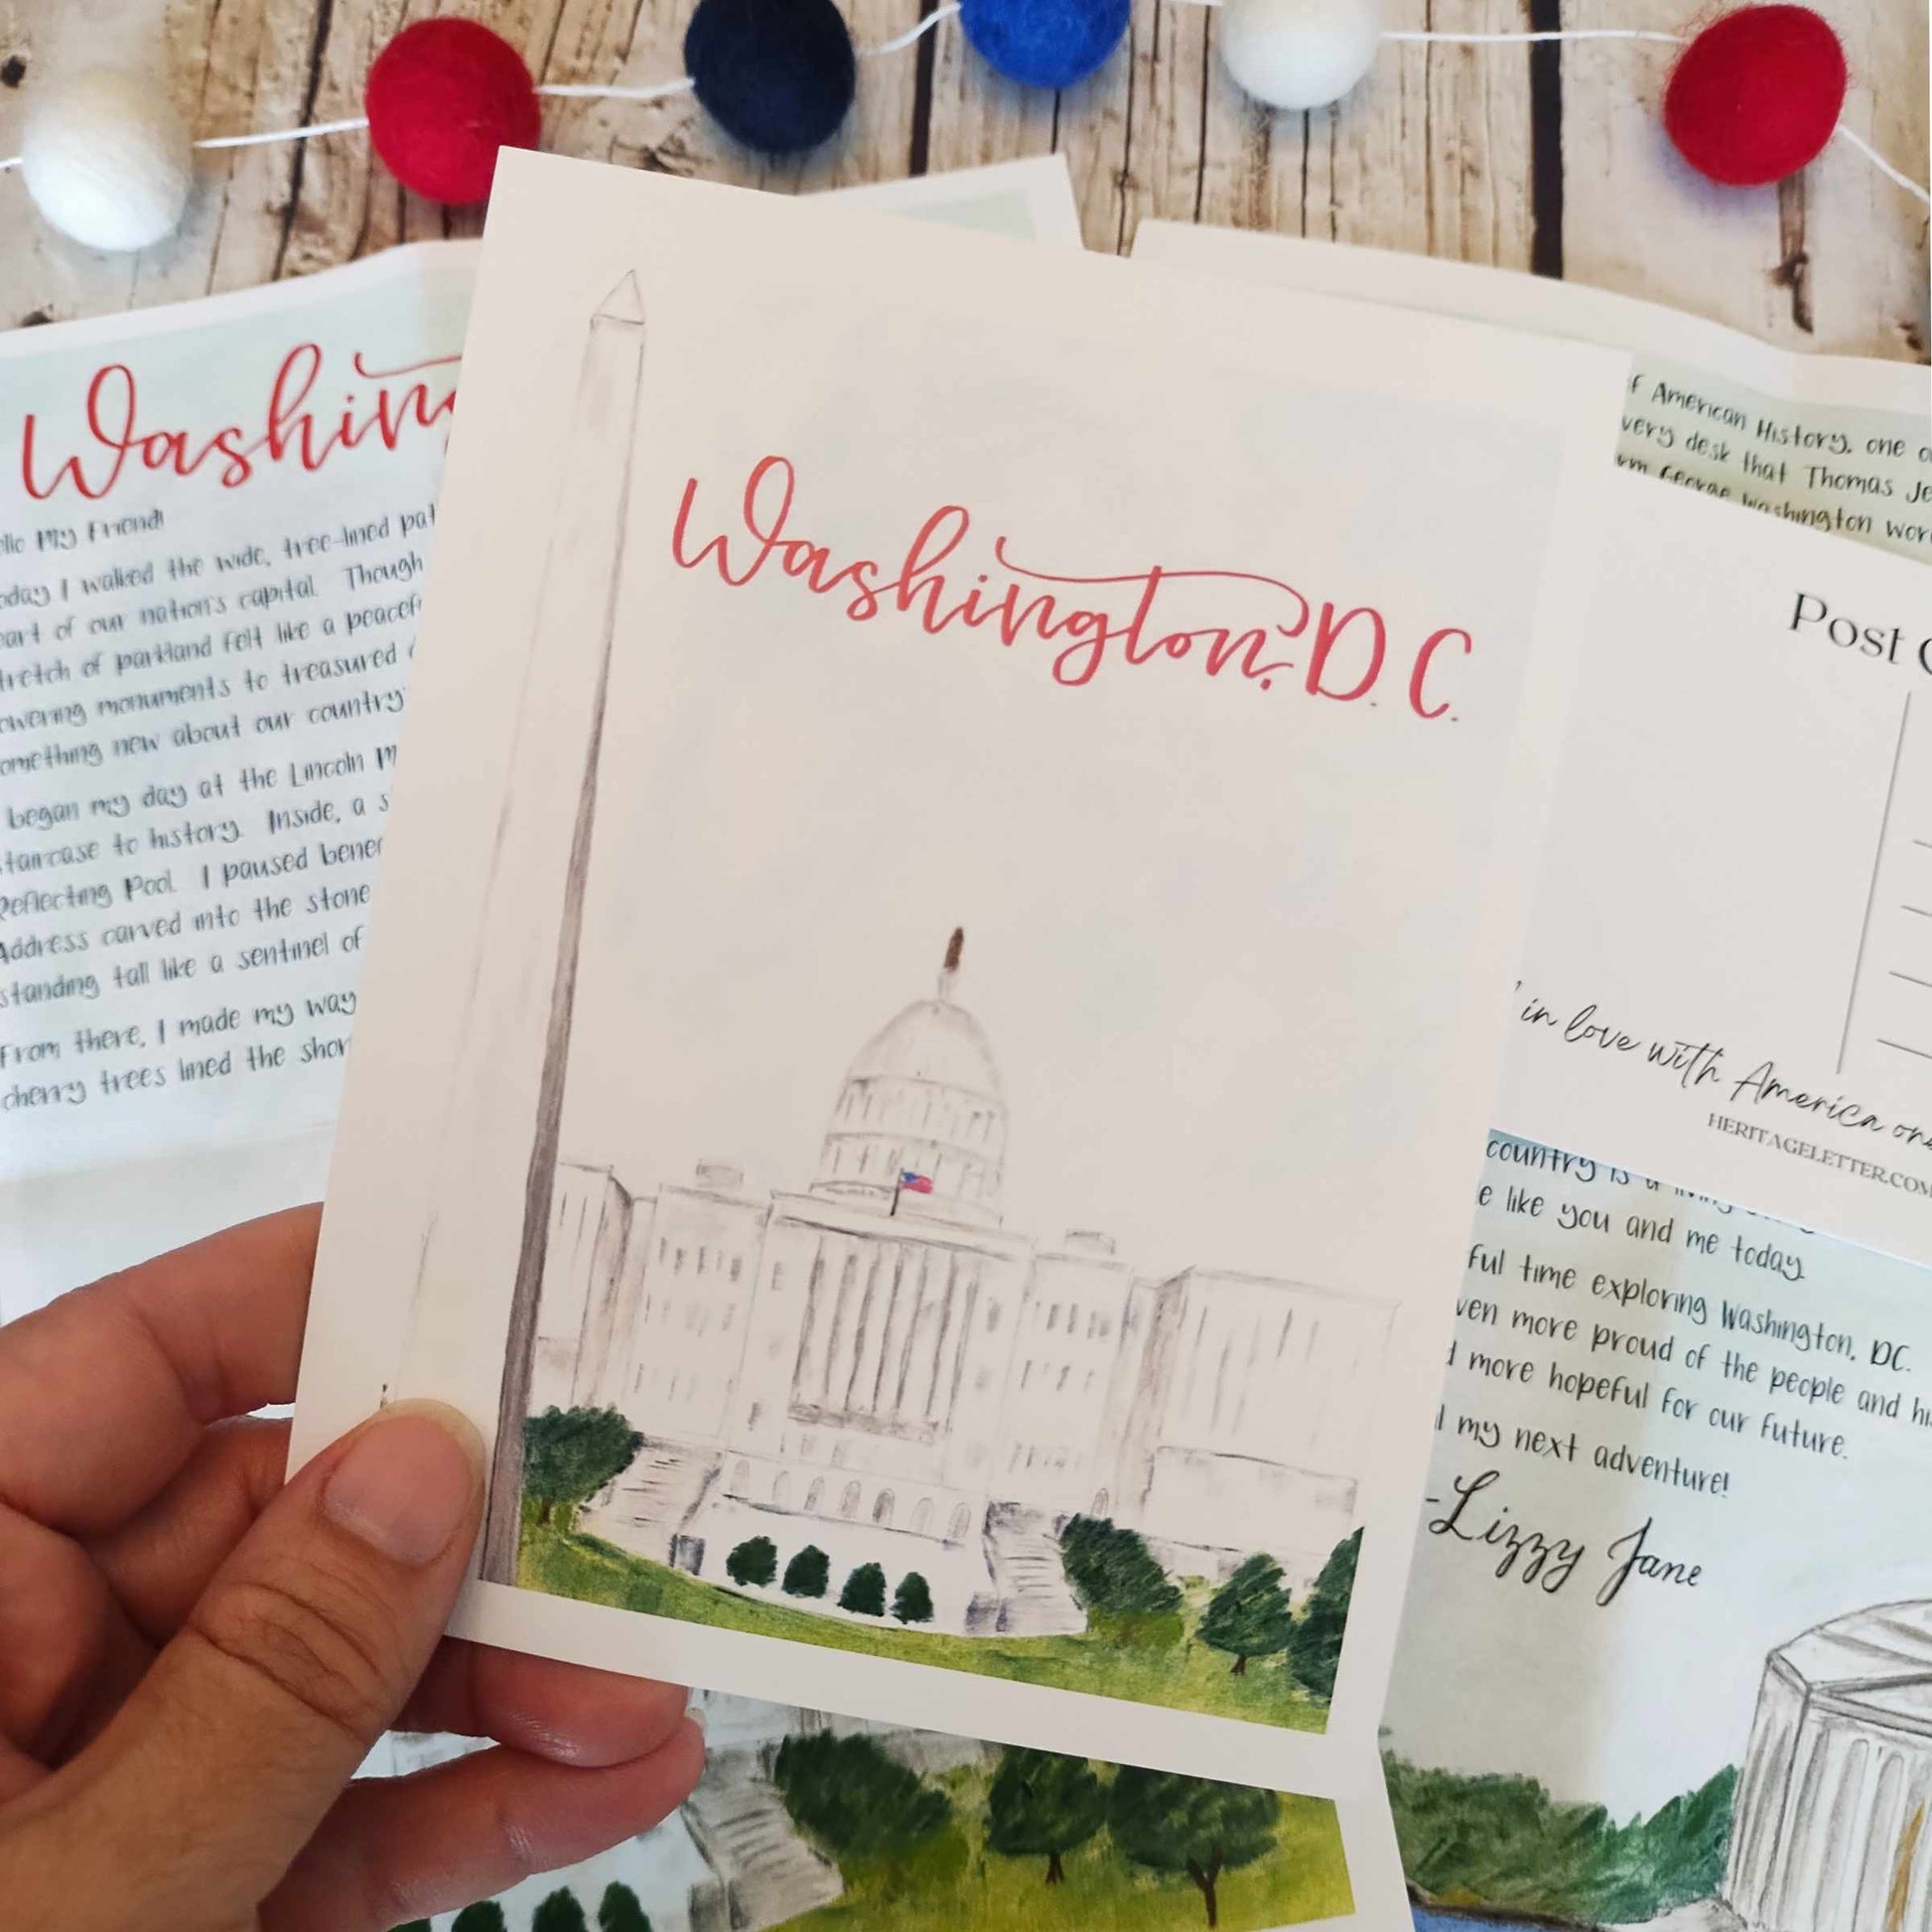 Washing
My Friend!
I walked the wide, tree-lined
of our nation's capital. Though
of parkland felt like a
monuments to treasured
new about our country
began my day at the Lincoln
to history. Inside, a
Reflecting Pool. I paused
Address carved into the stone
standing tall like a sentinel of
From there, I made my way
cherry trees lined the
Washington, D.C.
American History, one
very desk that Thomas
George Washington
Post
in love with America
HERITAGELETTER.COM
country is a
like you and me today.
time exploring Washington, DC.
more proud of the people and
more hopeful for our future.
my next adventure!
-Lizzy Jane